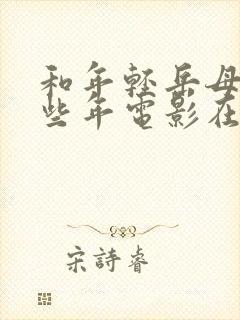 和年轻岳母
些年電影在
宋詩睿